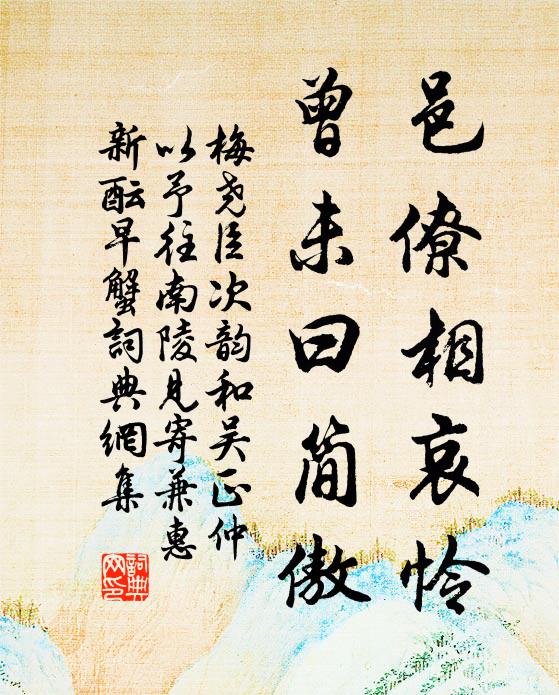 邑僚相哀怜
曾未曰简傲
梅尧臣次韵和吴正仲
以予往南陵见寄兼惠
新酝早蟹詞典網集
詞典网印